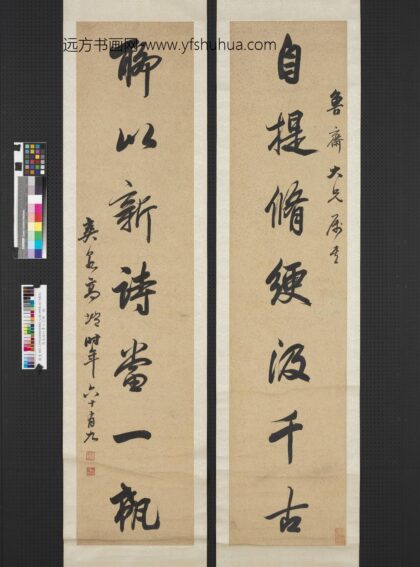 远方书画网 www.yfshuhua.com
魯齋大兄屬書
自提脩綆汲千古
聊以新詩當一瓻
爽泉高塏時年六十有九